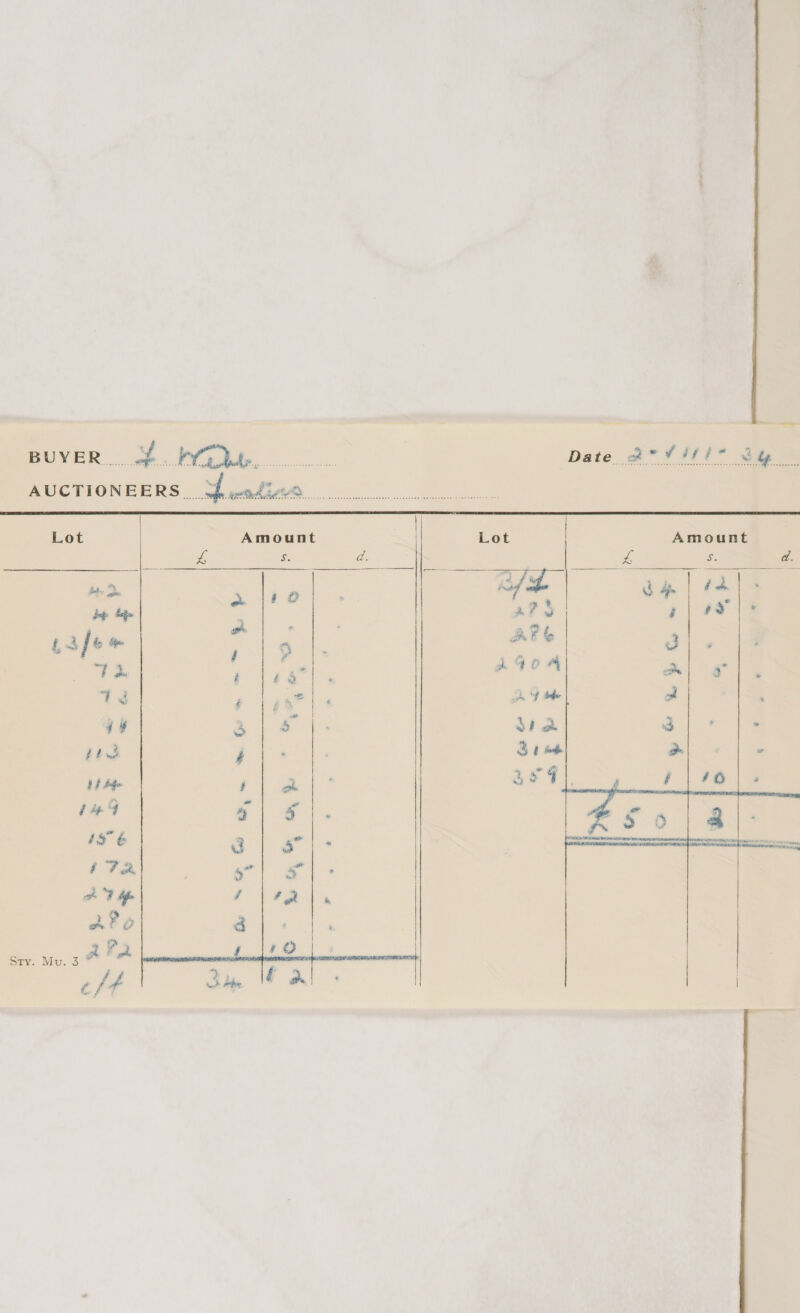 BUYER
Date
AUCTIONEERS
Lot Amount Lot Amount
£ s. d. £ s. d.
42 2 10 -
44 2 - -
63/64 1 9 -
72 1 15 -
73 1 15 -
3 5 -
113 1 - -
114 1 2 -
149 5 -
156 3 5 -
172 5 5 -
274 1 12 -
280 3 - -
282 1 10 -
c/f 34 12 -
34 12 -
283 1 15 -
286 3 - -
290A 2 5 -
294 2 -
312 3 - -
314 2 - -
359 1 10 -
£50 2 -
STY. MU. 3